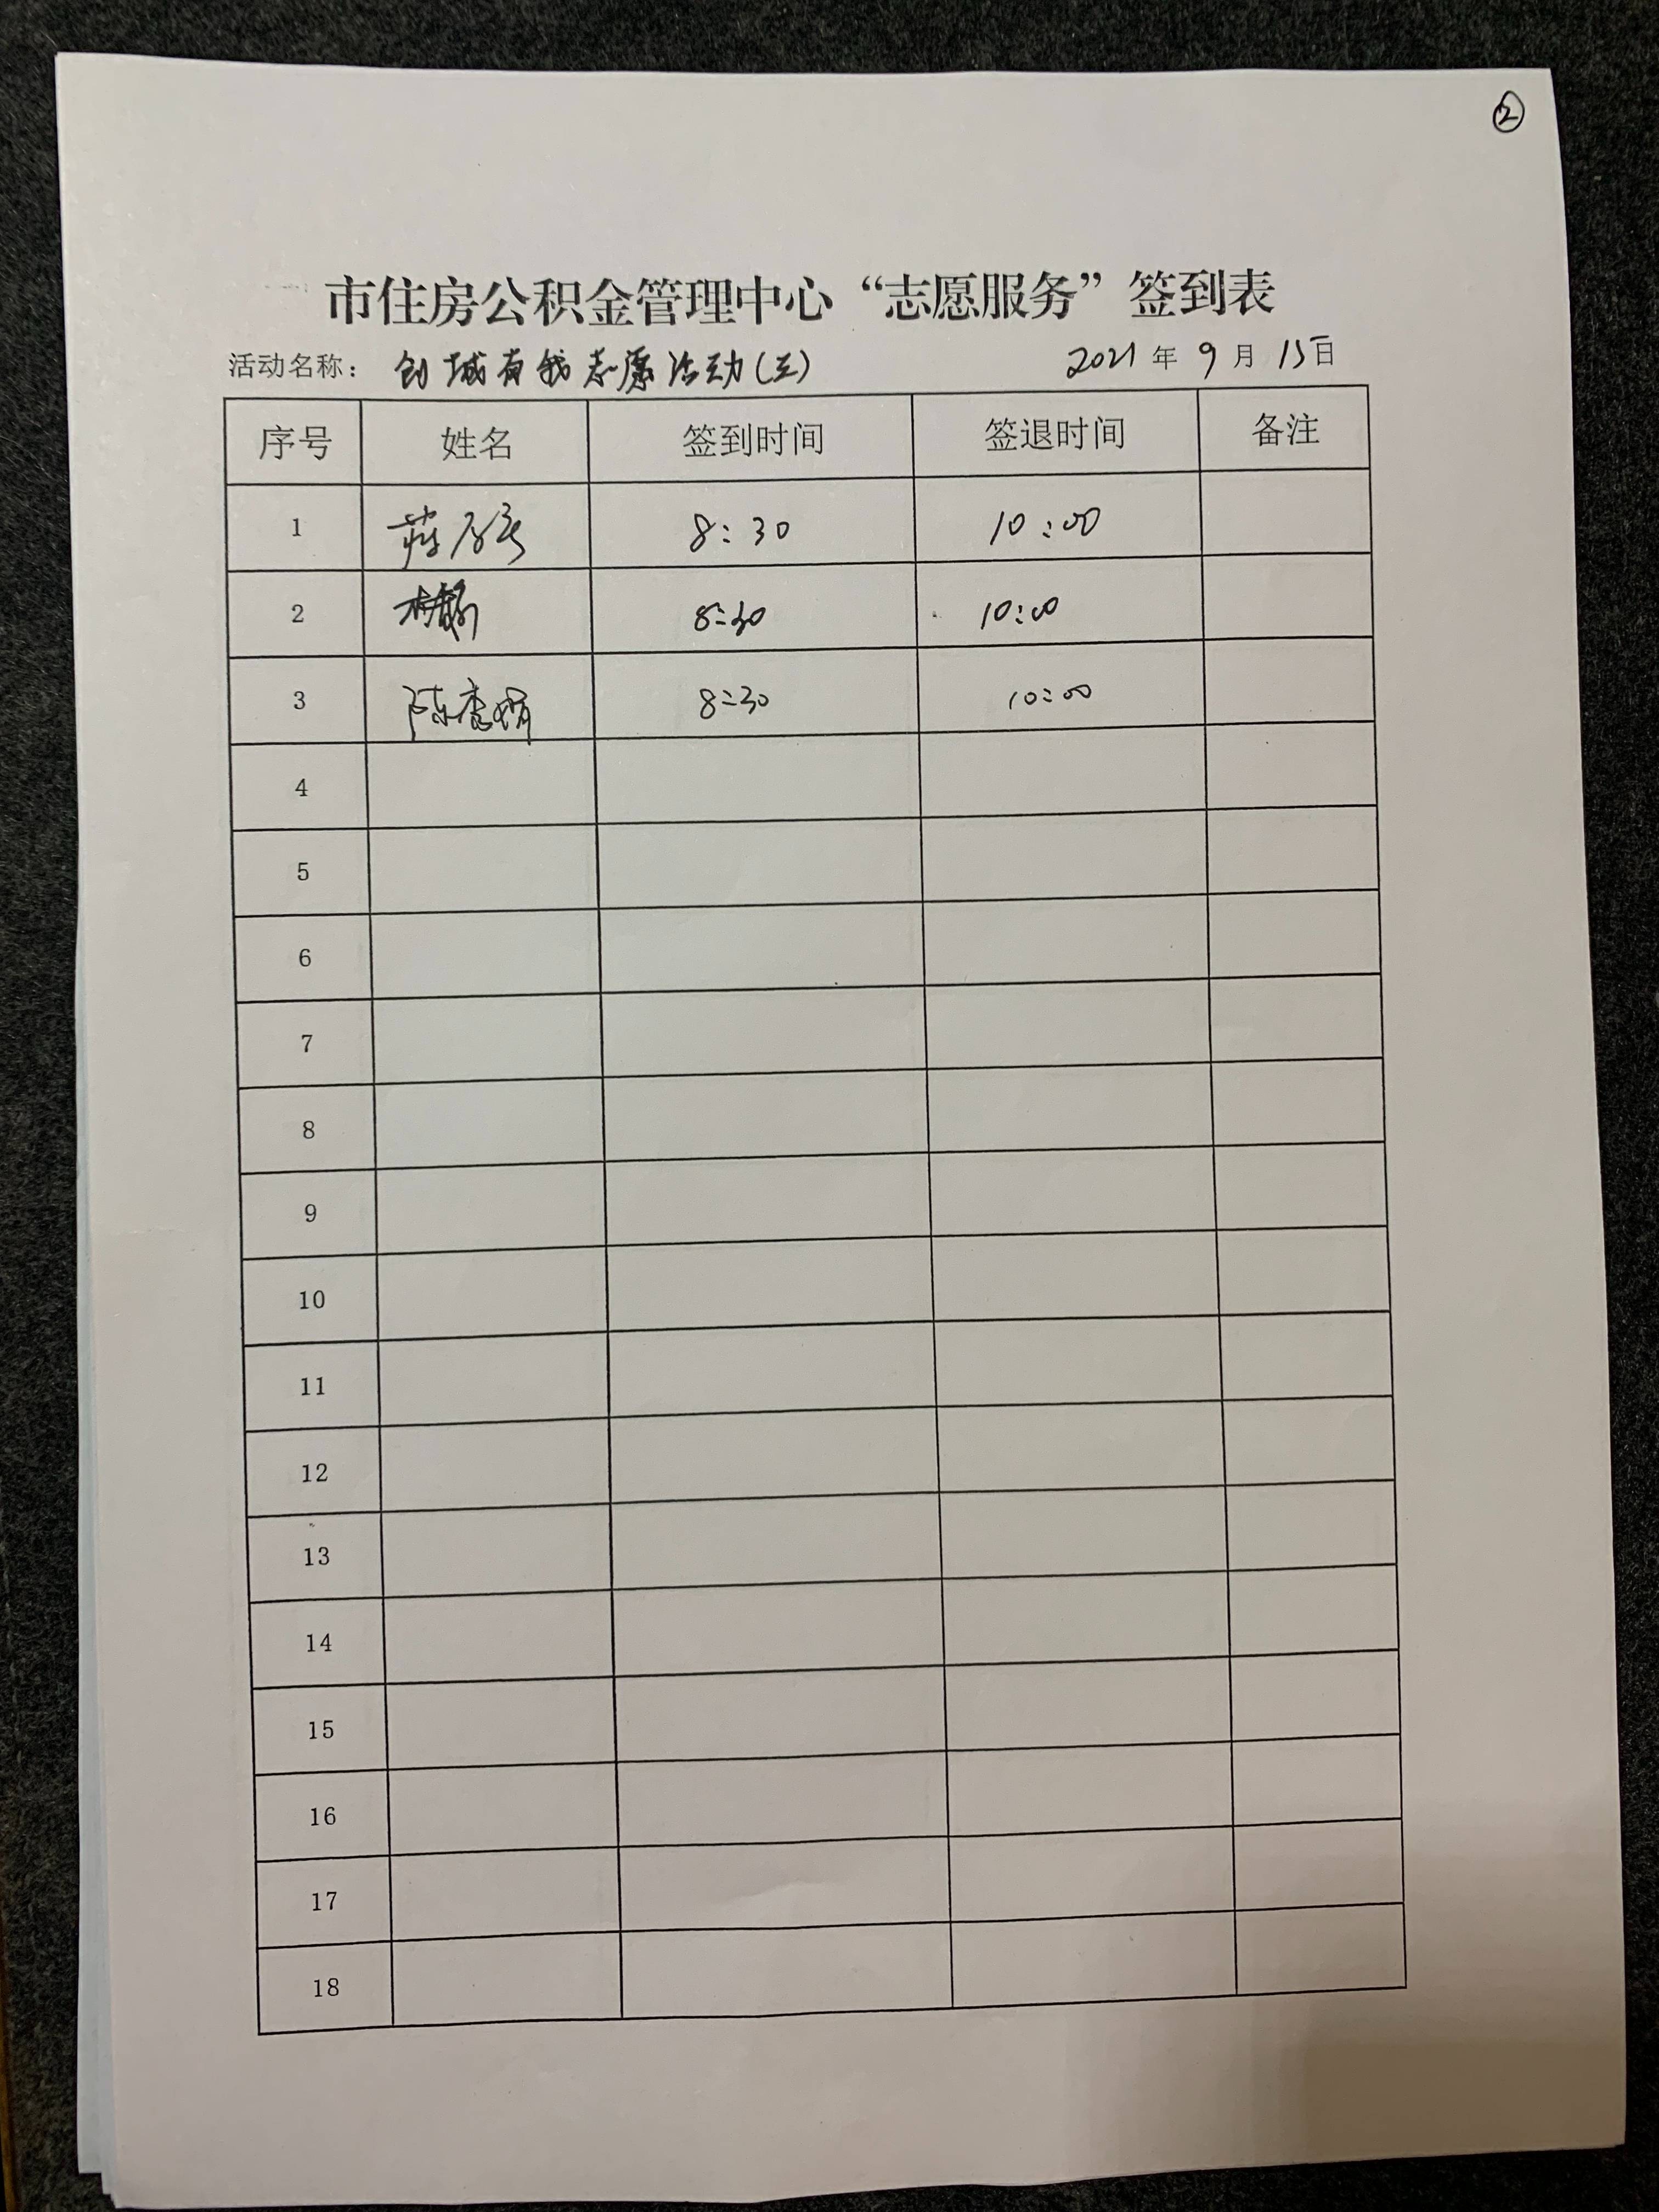 ②
市住房公积金管理中心“志愿服务”签到表
活动名称：创城有我志愿活动(三) 2021年9月15日
序号 姓名 签到时间 签退时间 备注
1 8:30 10:00
2 8:30 10:00
3 陈 8:30 10:00
4
5
6
7
8
9
10
11
12
13
14
15
16
17
18